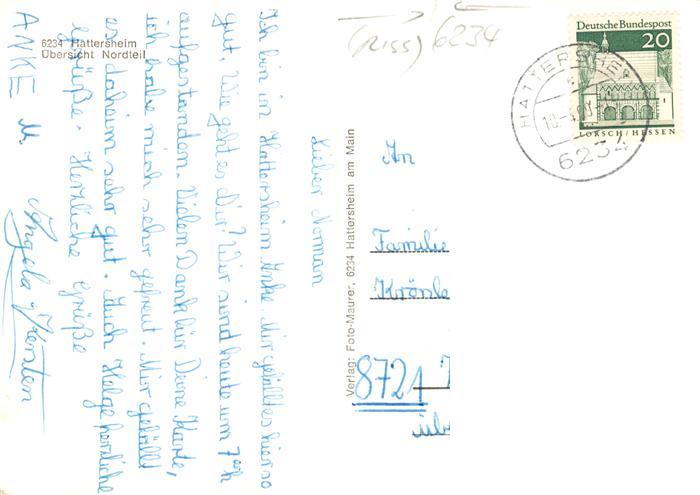 6234 Hattersheim
Übersicht Nordteil
Lieber Norman
Ich bin in Hattersheim Anke. Mir gefällt es hier so
gut, Wie geht es dir? Wir sind heute um 7 Uhr
aufgestanden. Vielen Dank für Deine Karte,
ich habe mich sehr gefreut. Mir gefällt
es daheim sehr gut. Auch Helge herzliche
Grüße. Herzliche Grüße
ANKE u.
Angela Kersten
Verlag: Foto-Maurer, 6234 Hattersheim am Main
(Riss) 6234
Deutsche Bundespost
20
LORSCH/HESSEN
HATTERSHEI
6234
An
Familie
8721
üb